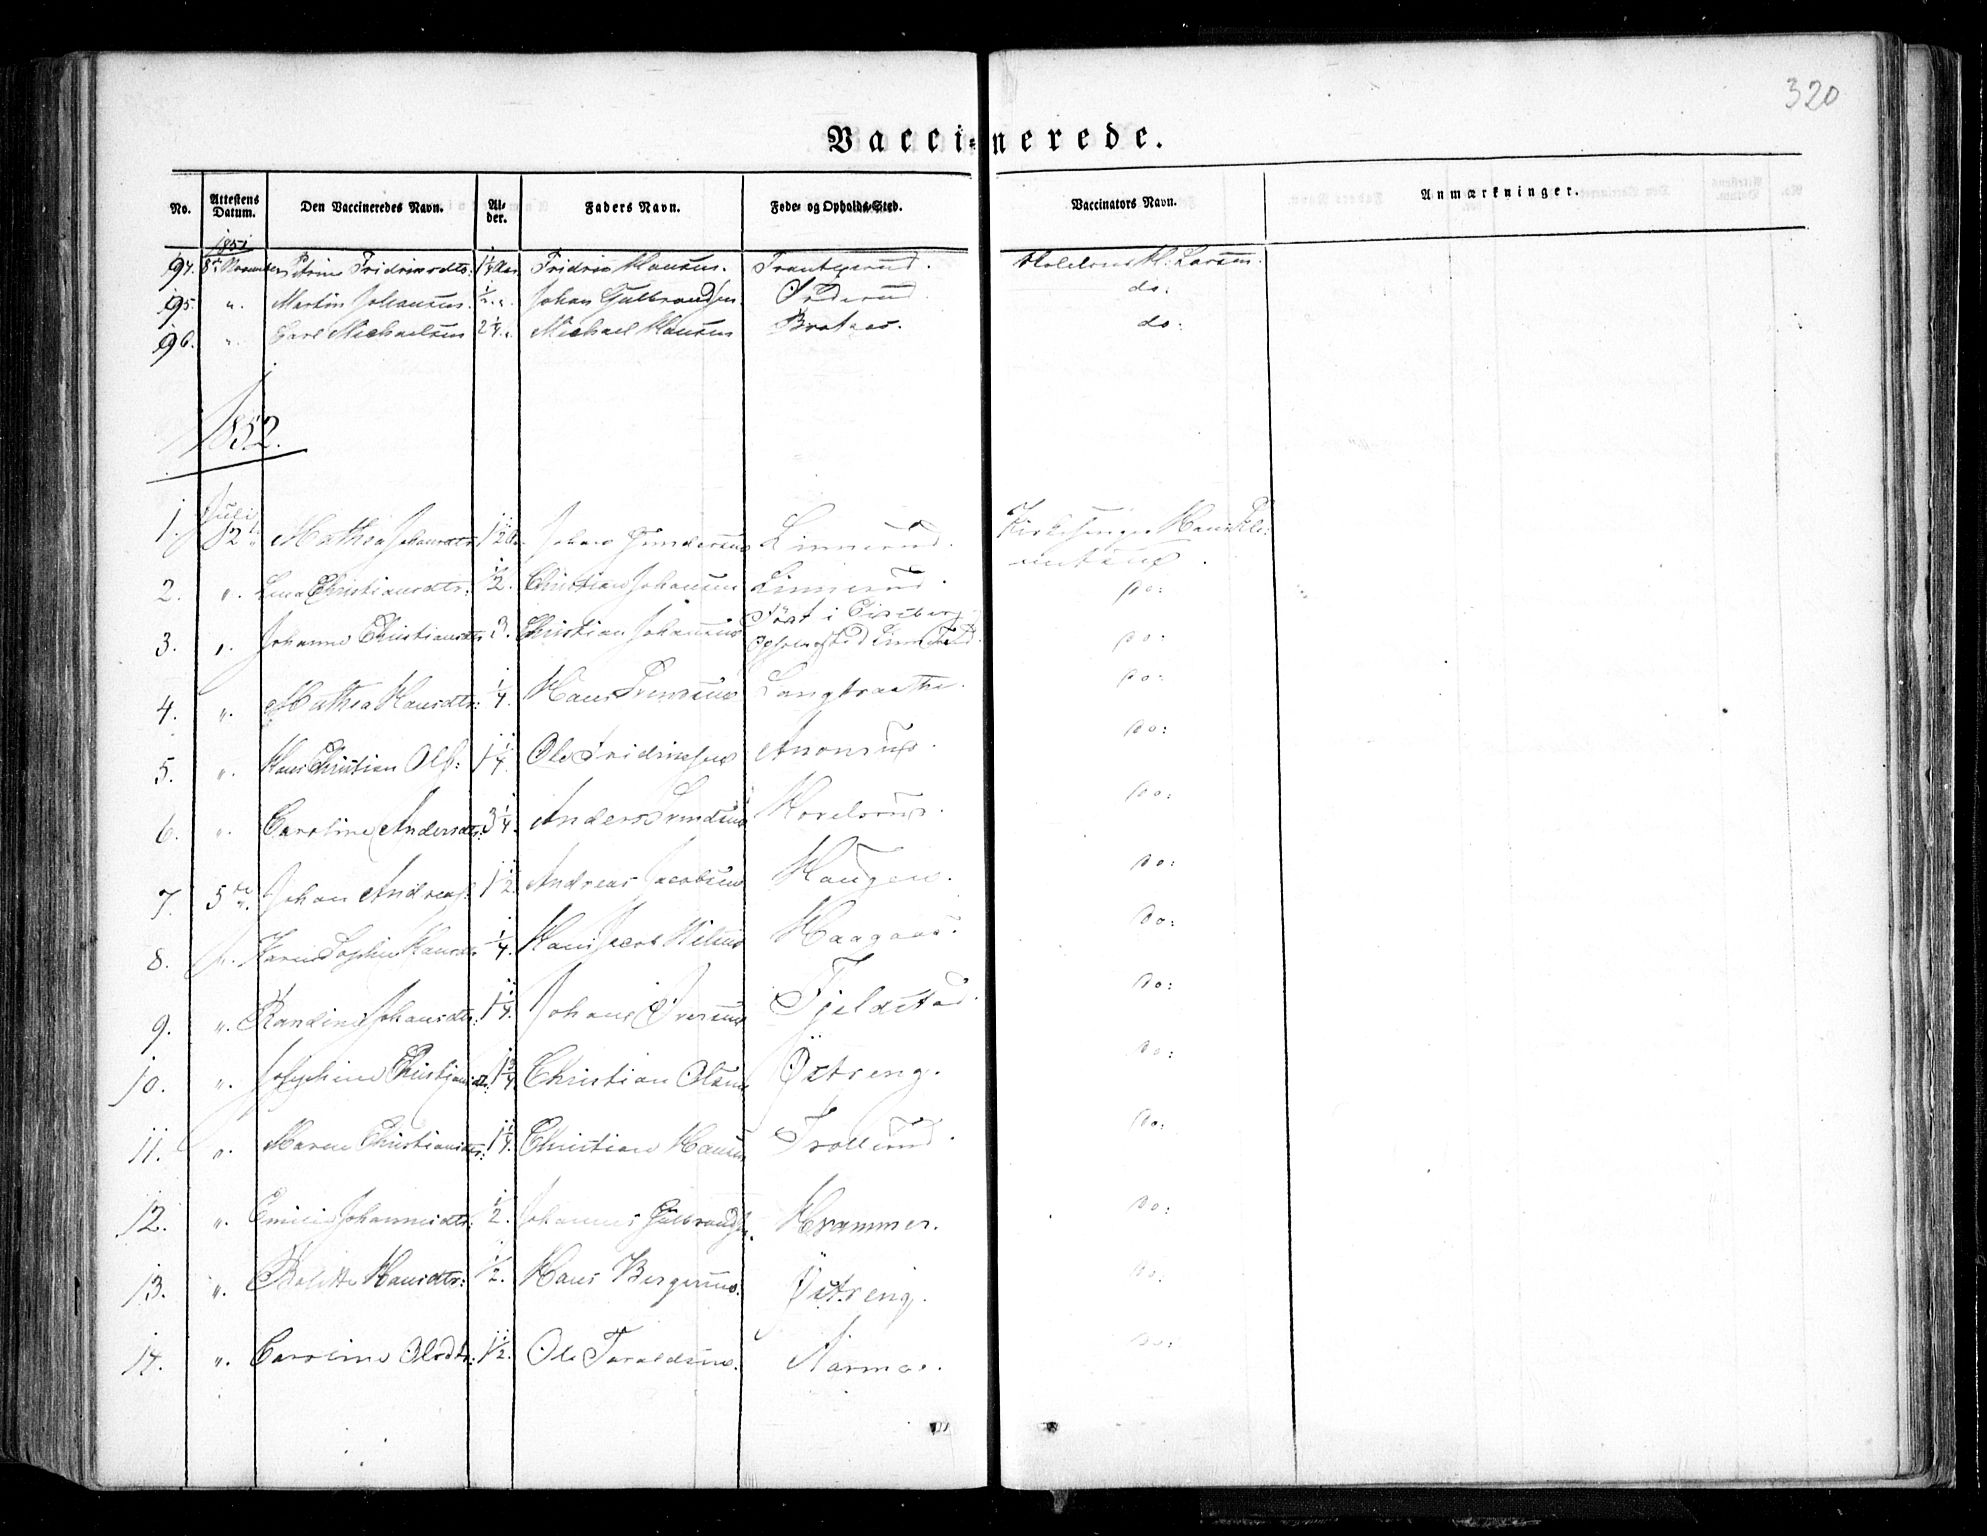 320
Vacci-nerede.
No. Attestens Datum. Den Vaccineredes Navn. Al-der. Faders Navn. Føde- og Opholds-Sted. Vaccinators Navn. Anmærkninger.
1851
94. 8de November Fridrichsdtr: 1 1/4 Aar Fridrich Hansen. Larsen.
95. " Martin Johansen 1/2 " Johan Gulbrandsen do:
96. " Carl Michaelsen 2 1/4 " Michael Hansen Braten. do:
1852.
Juli
1. 2 Mathea Johansdtr: 1 1/2 Johan Gundersen Linnerud. Kirkesanger Hans Kle-
mensen.
2. " Lina Christiansdtr: 1/2. Christian Johansen Linnerud. Do:
3. " Johanne Christiansdtr: 3. Christian Johansen Født i
Opholdssted Linnerud. Do:
4. " Mathea Hansdtr: 1/4. Hans Svensen Langbraathe. Do:
5. " Hans Christian Ols: 1 1/4. Ole Fridrichsen Do:
6. " Caroline Andersdtr: 3 1/4. Anders Svendsen Do:
7. 5te Johan Andreas: 1 1/2 Andreas Jacobsen Haugen. Do:
8. " Karen Sophie Hansdtr: 1/4. Hans Jacob Nilsen Haagaas. Do:
9. " Randine Johansdtr: 1 1/4. Johan Iversen Fjeldstad. Do:
10. " Josephine Christiansdtr: 1 3/4. Christian Olsen Östreng. Do:
11. " Maren Christiansdtr: 1 1/4. Christian Hansen Trollerud. Do:
12. " Emilie Johannesdtr: 1/2. Johannes Gulbrandsen. Krammer. Do:
13. " Bolette Hansdtr: 1/2. Hans Bergersen. Östreng. Do:
14. " Caroline Olsdtr: 1 1/2. Ole Taraldsen. Aarmoe. Do: